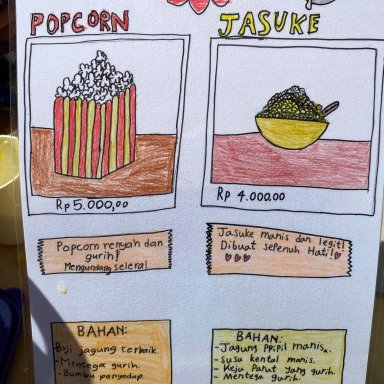 POPCORN
Rp 5.000,00
Popcorn renyah dan
gurih!
Mengundang selera!
BAHAN:
Biji jagung terbaik.
-Mentega gurih.
-Bumbu penyedap.
JASUKE
Rp 4.000,00
Jasuke manis dan legit!
Dibuat sepenuh Hati!
BAHAN:
-Jagung Pipil manis.
-susu kental manis.
-Keju Parut yang gurih.
-Mentega gurih.